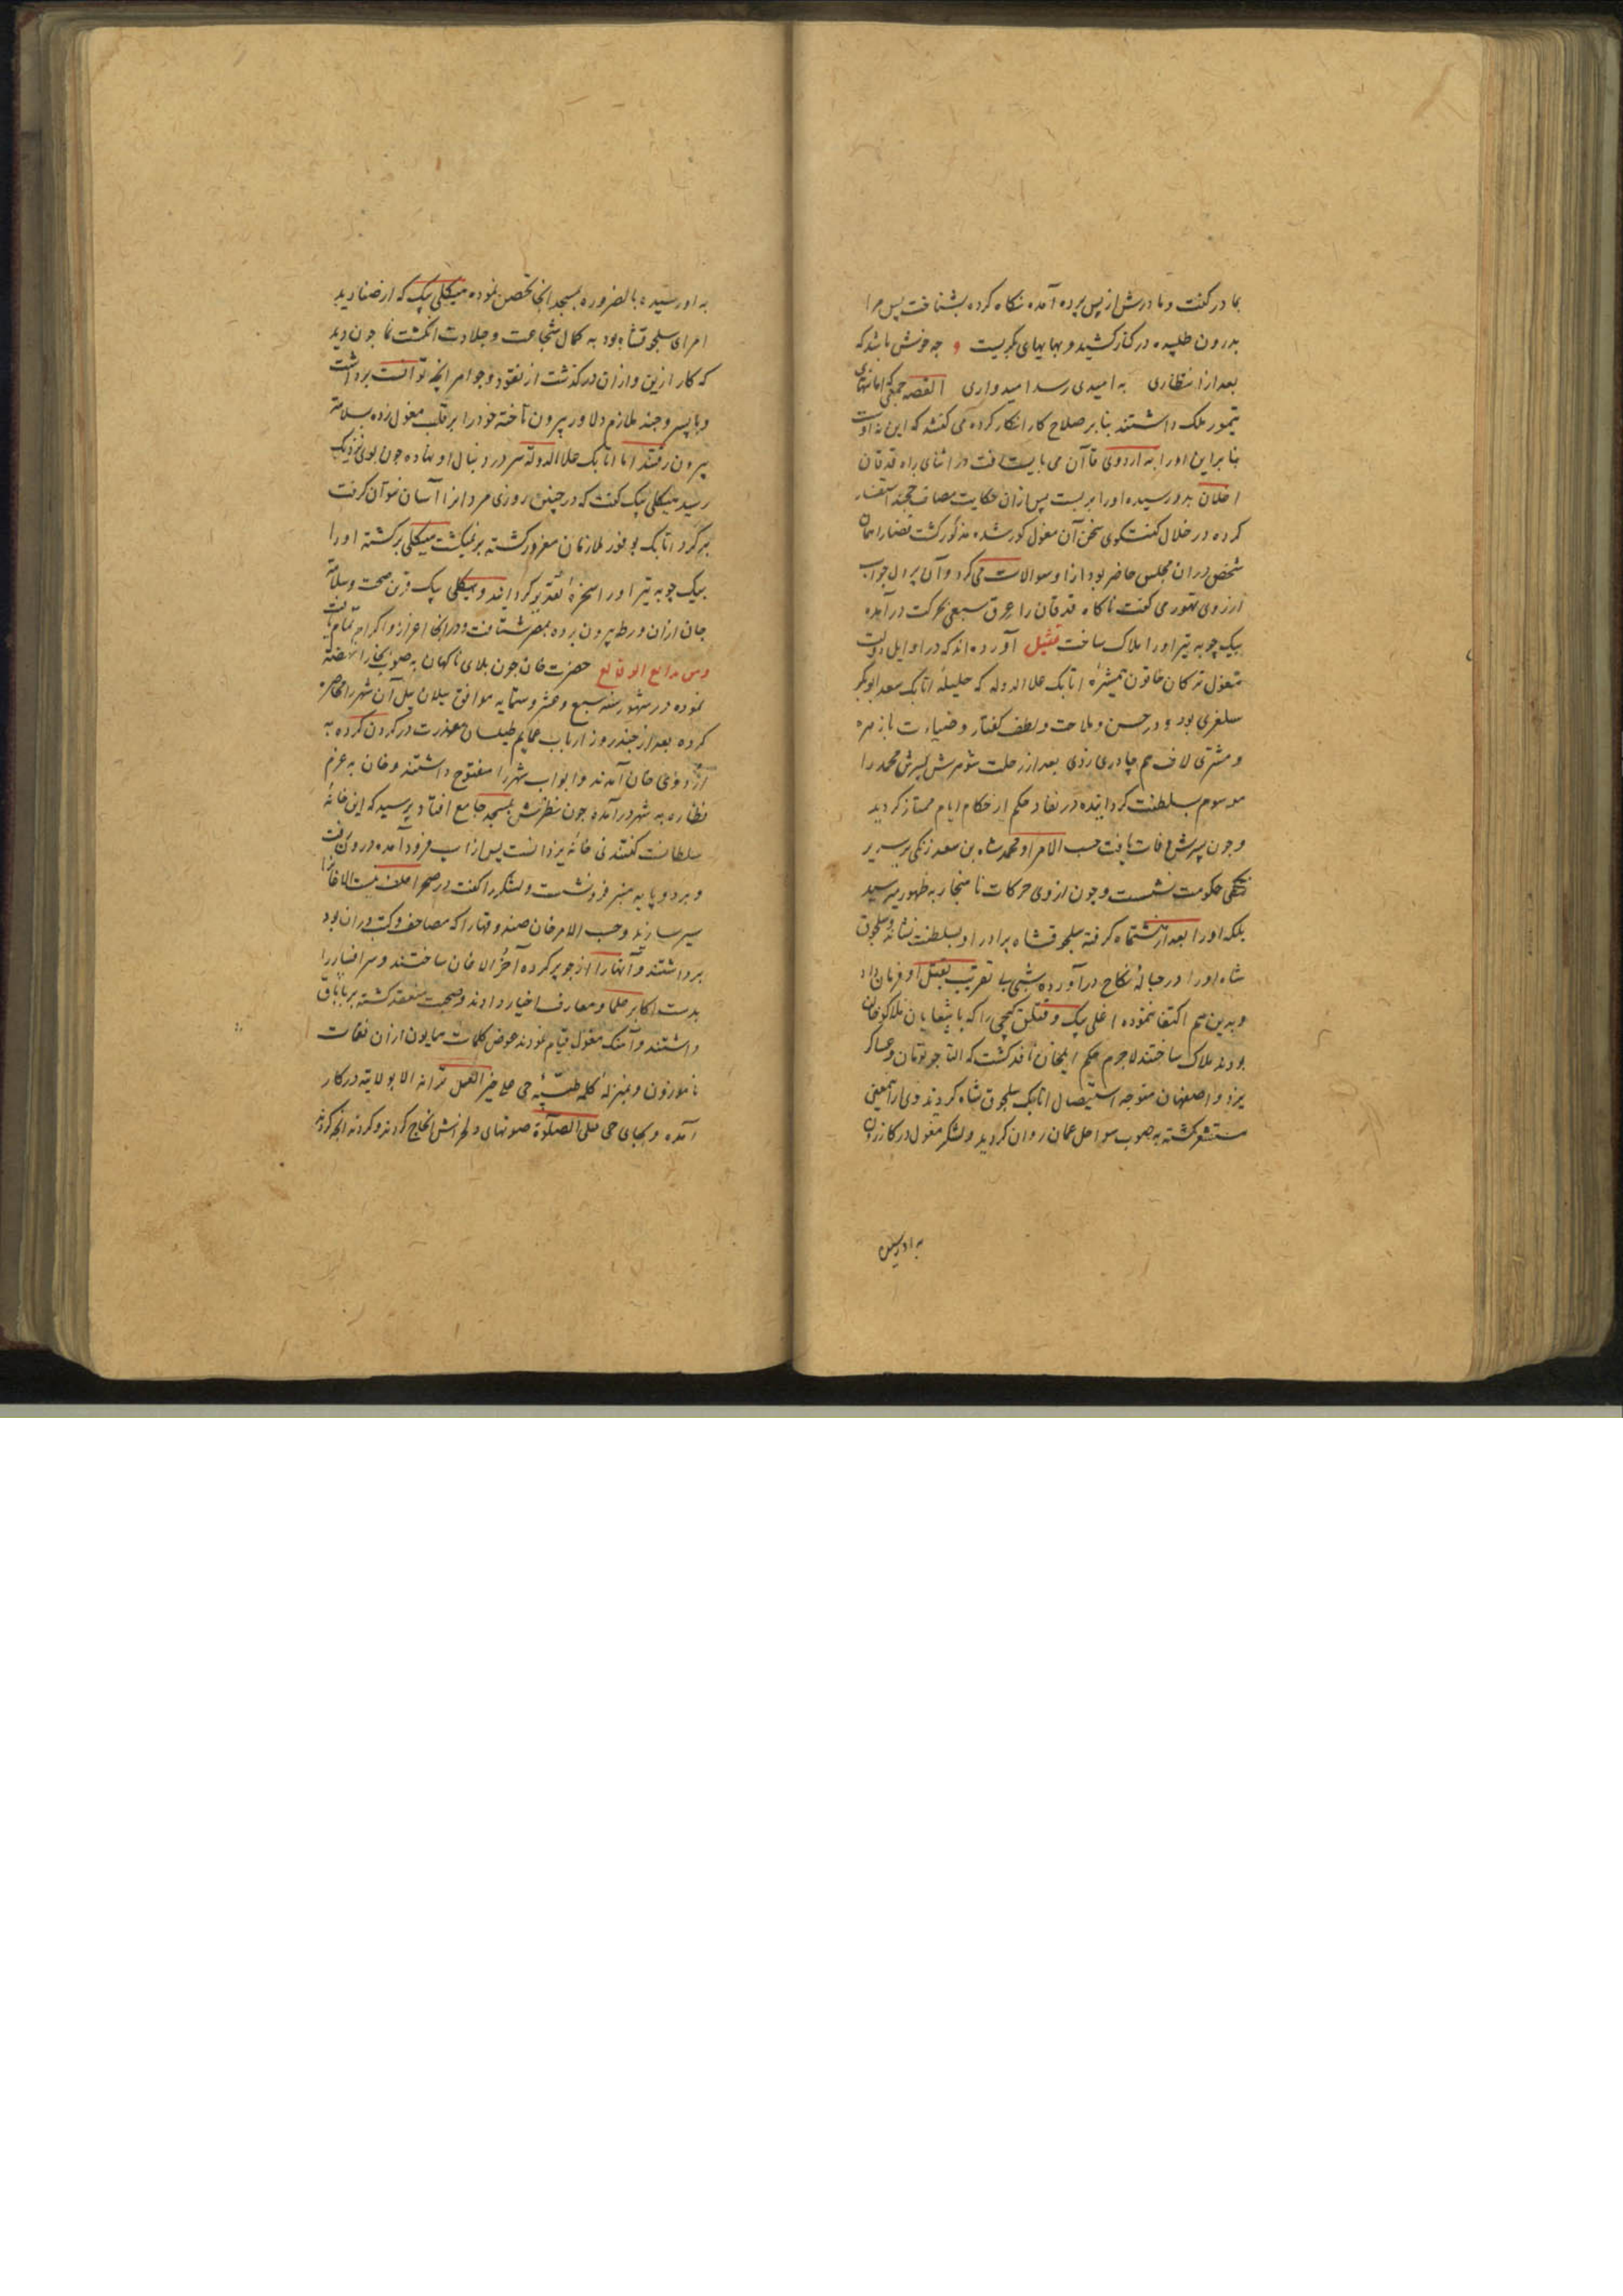 بمادر گفت و مادرش از پس پرده آمده نگاه کرده بشناخت پس مرا
بدرون طلبیده در کنار کشید و بهایهای بگریست و چه خوش باشد که
بعد از انتظاری به امیدی رسد امیدواری القصه جمعی که امانتهای
تیمور ملک داشتند بنابر صلاح کار انکار کرده می گفتند که این نه اوست
بنابراین او را به اردوی قاآن می بایست رفت در اثنای راه قدقان
اغلان بدو رسیده او را بربست پس از آن حکایت مصاف خجند استفسار
کرده در خلال گفتگوی سخن آن مغول کور شده مذکور گشت قضا را همان
شخص در آن مجلس حاضر بود از او سوالات می کرد و آن پر دل جواب
از روی تهور می گفت ناگاه قدقان را عرق سبعی بحرکت درآمده
بیک چوبه تیر او را هلاک ساخت تمثیل آورده اند که در اوایل دولت
مغول ترکان خاتون همشیرهٔ اتابک علاالدوله که حلیلهٔ اتابک سعد ابوبکر
سلغری بود و در حسن و ملاحت و لطف گفتار و ضیاءت با زهره
و مشتری لاف هم چادری زدی بعد از رحلت شوهرش پسرش محمد را
موسوم بسلطنت گردانیده در نفاذ حکم از حکام ایام ممتاز گردید
و چون پسرش وفات یافت حسب الامر او محمد شاه بن سعد زنگی بر سریر
حکومت نشست و چون از وی حرکات ناهنجار به ظهور میرسید
بلکه او را بعد از هشتماه گرفته سلجوقشاه برادر او بسلطنت نشاند و سلجوق
شاه او را در حبالهٔ نکاح درآورده شبی بی تقریب بقتل او فرمان داد
و بدین هم اکتفا ننموده اغلی بیک و قتلق بیکچی را که باشقایان هلاکو خان
بودند هلاک ساختند لاجرم حکم ایلخان نافذ گشت که التاجو نویان و عساکر
یزد و اصفهان متوجه استیصال اتابک سلجوق شاه گردیدند وی از این معنی
مستشعر گشته به صوب سواحل عمان روان گردید و لشکر مغول در کازرون
به او رسیده
به او رسیده بالضروره بمسجد آنجا تحصن نموده میکلی بیک که از صنادید
امرای سلجوقشاه بود به کمال شجاعت و جلادت انگشت نما چون دید
که کار ازین و از آن درگذشت از نقود و جواهر آنچه توانست برداشت
و با پسر و چند ملازم دلاور بیرون تاخته خود را بر قلب مغول زده بسلامت
بیرون رفتند اما اتابک علاالدوله سر در دنبال او نهاده چون بوی نزدیک
رسید میکلی بیک گفت که در چنین روزی مردان را آسان نتوان گرفت
برگرد اتابک بوفور ملازمان مغرور گشته برنمیگشت میکلی برگشته او را
بیک چوبه تیر او را سخرهٔ تقدیر گردانید و میکلی بیک قرین صحت و سلامت
جان از آن ورطه بیرون برده بمصر شتافت و در آنجا اعزاز و اکرام تمام یافت
ومن بدایع الوقایع حضرت خان چون بلای ناگهان به صوب بخارا نهضت
نموده در شهور سنه سبع و عشر و ستمایه موافق ییلان ییل آن شهر را محاصره
کرده بعد از چند روز ارباب عمایم طیلسان معذرت در گردن کرده به
اردوی خان آمدند و ابواب شهر را مفتوح داشتند و خان به عزم
نظاره به شهر درآمده چون نظرش بمسجد جامع افتاد پرسید که این خانهٔ
سلطانست گفتند نی خانهٔ یزدانست پس از اسب فرود آمده درون رفت
و بر دو پایه منبر فرو نشست و لشکر را گفت در صحرا علف نیست الاغانرا
سیر سازند و حسب الامر خان صندوقها را که مصاحف و کتب در آن بود
برداشتند و آنها را از جو پر کرده آخر الاغان ساختند و سر افسار را
بدست اکابر علما و معارف اخیار دادند و صحبت منعقد گشته بر یاباق
داشتند و آهنگ مغول قیام نمودند عوض کلمات همایون از آن نغمات
ناموزون و بمنزلهٔ کلمه طیبهٔ حی علی خیر العمل ترانه الا بولایته در کار
آمده و بجای حی علی الصلوة صوتهای دلخراش انجاج کردند و کردند آنچه کردند